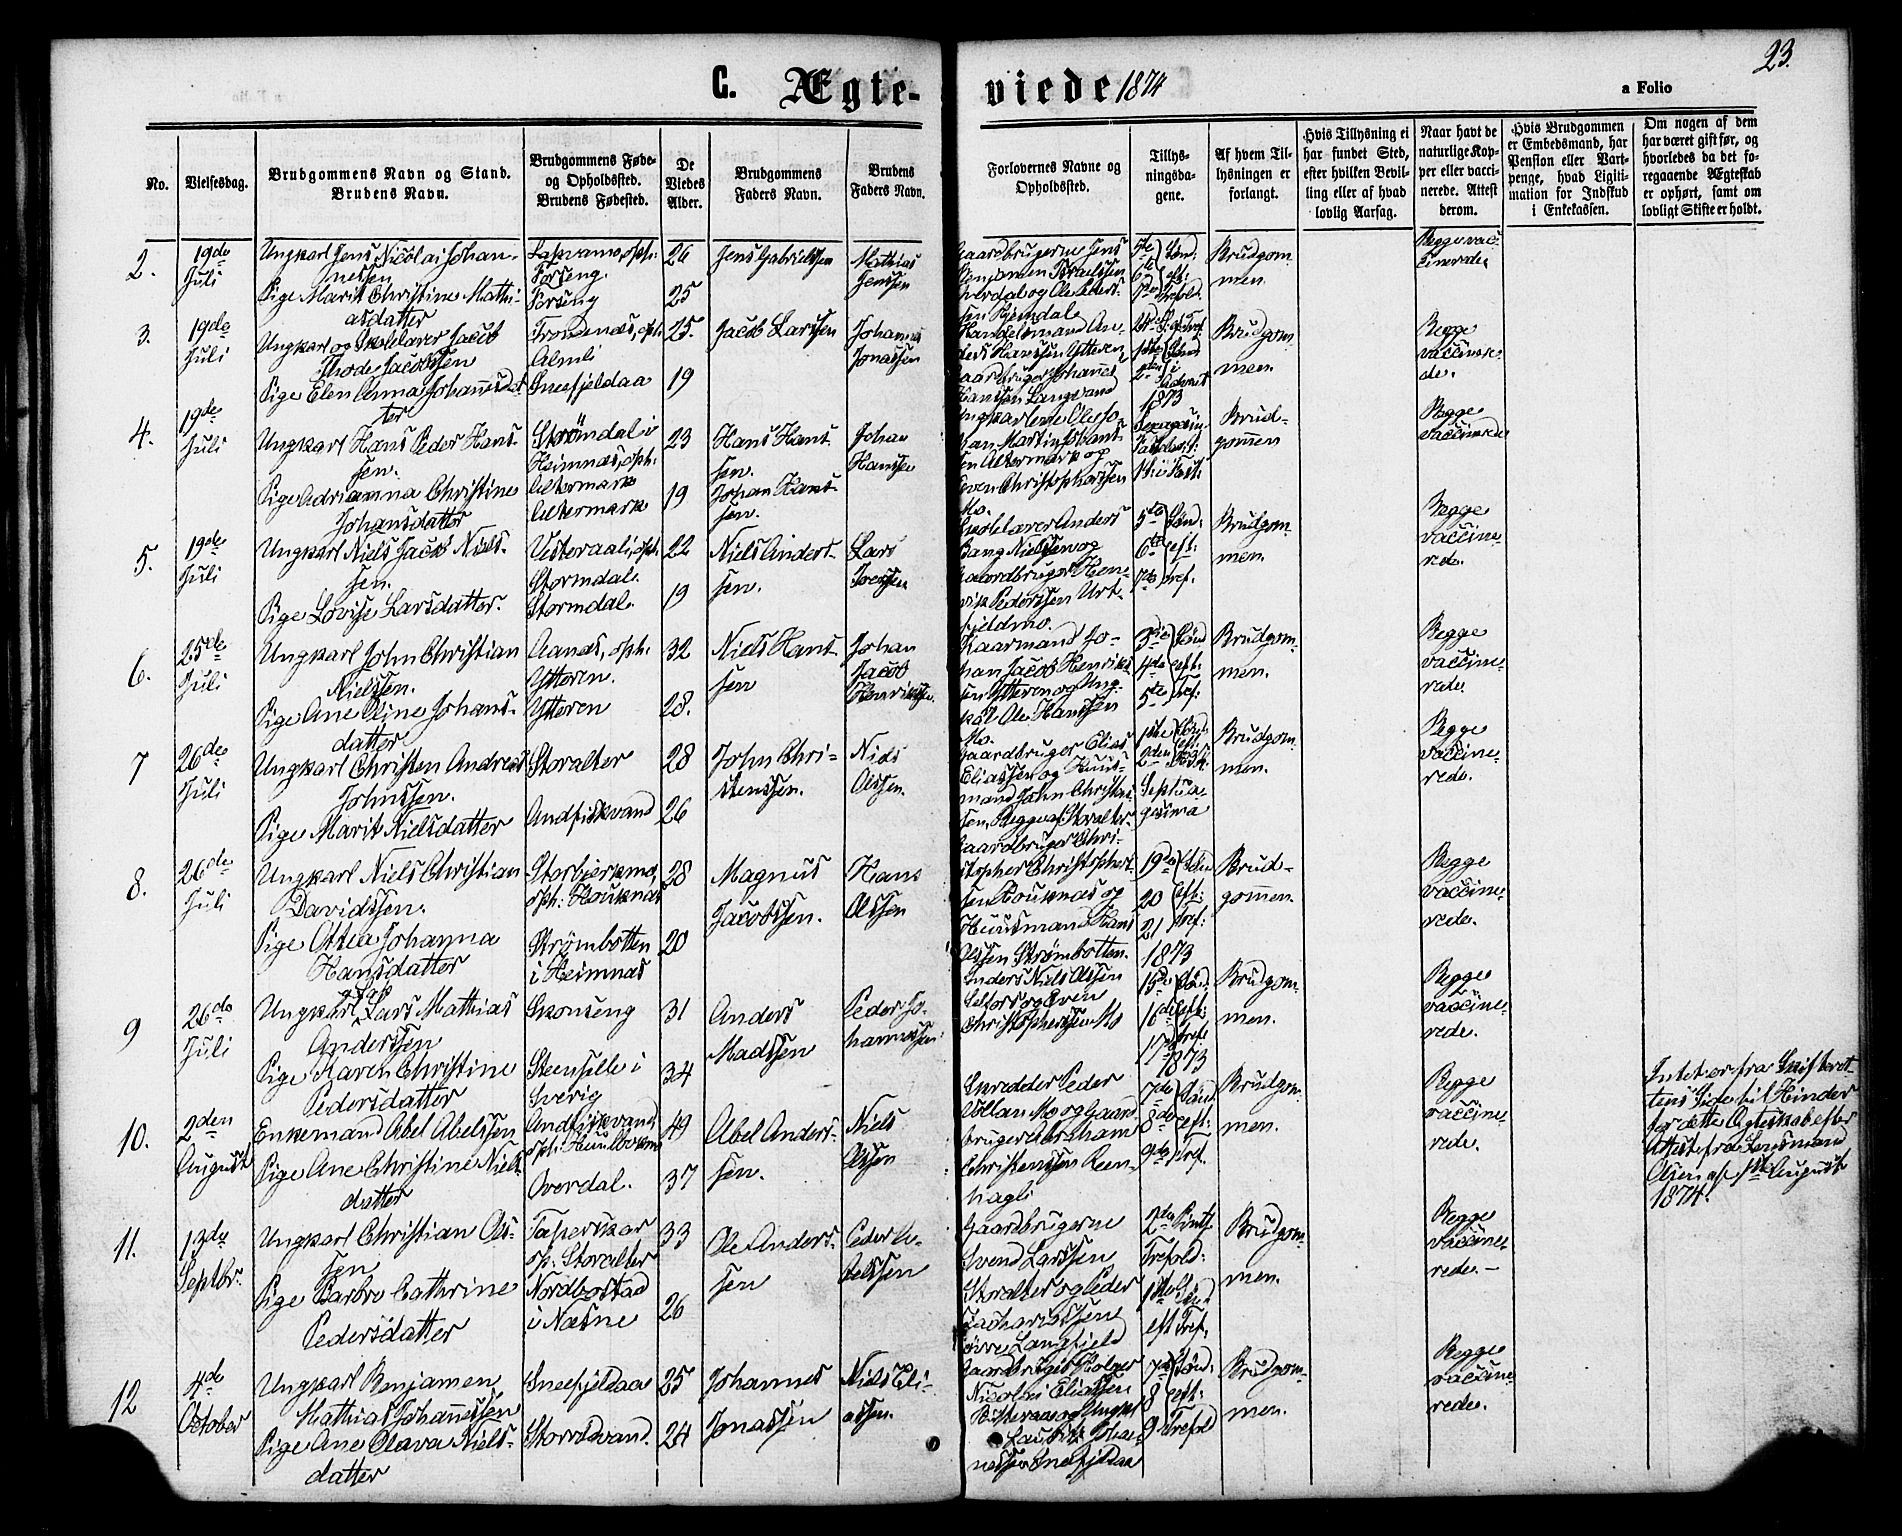 23.
C. Ægte-
viede 1874
a Folio
No.
Vielsesdag.
Brudgommens Navn og Stand.
Brudens Navn.
Brudgommens Føde-
og Opholdssted.
Brudens Fødested.
De
Viedes
Alder.
Brudgommens
Faders Navn.
Brudens
Faders Navn.
Forlovernes Navne og
Opholdssted.
Tillys-
ningsda-
gene.
Af hvem Til-
lysningen er
forlangt.
Hvis Tillysning ei
har fundet Sted,
efter hvilken Bevil-
ling eller af hvad
lovlig Aarsag.
Naar havt de
naturlige Kop-
per eller vacci-
nerede. Attest
derom.
Hvis Brudgommen
er Embedsmand, har
Pension eller Vart-
penge, hvad Ligiti-
mation for Indskud
i Enkekassen.
Om nogen af dem
har været gift før, og
hvorledes da det fo-
regaaende Ægteskab
er ophørt, samt om
lovligt Skifte er holdt.
2.
19de
Juli
Ungkarl Jens Nicolai Johan-
nessen
Pige Marit Christine Mathi-
asdatter
oph:
Forseng
Forseng
26
25
Jens Gabrielssen
Mathias
Jenssen
Gaardbrugerne Jens
Benjamen Israelssen
Hverdal og Ole Peders-
sen Bjerndal
5te Sønd:
6te eft:
7de Trefold.
Brudgom-
men.
Begge vac-
cinerede
3.
19de
Juli
Ungkarl og Skolelærer Jacob
Thode Jacobssen
Pige Elen Anna Johannesdat-
ter
Trondenæs, oph:
Almli
Sneefjeldaa
25.
19
Jacob Larssen
Johannes
Jonassen
Handelsmand An-
ders Hanssen Ytteren
Gaardbruger Johannes
Hanssen Langvand
1ste Sønd
2den i
Advent
1873
Brudgom-
men.
Begge
vaccinere-
de.
4.
19de
Juli
Ungkarl Hans Peder Hans-
sen.
Pige Adrianna Christine
Johansdatter
Strømdal i
Heimnæs, oph:
Altermark
Altermark
23
19
Hans Hans-
sen.
Johan Hans-
sen.
Johan
Hanssen
Ungkarlene Ole Jo-
han Martin Johans-
sen Altermark og
Even Christophersen
Mo.
Brud-
gommen
Begge
vaccinerede
5.
19de
Juli
Ungkarl Niels Jacob Niels-
sen.
Pige Lovise Larsdatter.
Vesteraali, oph:
Stormdal.
Stormdal.
22
19
Niels Anders-
sen.
Lars
Iverssen
Skolelærer Anders
Bang Nielssen og
Gaardbruger Hen-
rik Pederssen Urt-
fjeldmo.
5te Sønd:
6te eft:
7de Tref.
Brudgom-
men.
Begge
vaccine-
rede.
6.
25de
Juli
Ungkarl John Christian
Nielssen.
Pige Ane Oline Johans-
datter
Aanæs, oph:
Ytteren.
Ytteren
32
28.
Niels Hans-
sen
Johan
Jacob
Henrikssen.
Kaarmand Jo-
han Jacob Henriks-
sen Ytteren og Ung-
karl Ole Hanssen
Mo.
3die Sønd
4de eft:
5te Tref:
Brudgom-
men.
Begge
vaccine-
rede.
7
26de
Juli
Ungkarl Christen Andreas
Johnssen.
Pige Marit Nielsdatter
Storalter
Andfiskvand
28
26
John Chri-
stenssen.
Niels
Olssen.
Gaardbruger Elias
Eliassen og Huus-
mand John Christens-
sen, Begge af Storalter.
1ste Sønd:
2den
Septua-
gesima
Brudgom-
men.
Begge
vaccine-
rede.
8.
26de
Juli
Ungkarl Niels Christian
Davidssen.
Pige Ottea Johanna
Hansdatter
Storbjerkmo,
oph: Houknæs
Strømbotten
i Heimnæs
28
20
Magnus
Jacobssen.
Hans
Olssen
Gaardbruger Chri-
stopher Christophers-
sen Houknæs og
Huusmand Hans
Olssen Strømbotten.
19de Sønd
20 eft:
21 Tref:
1873
Brud-
gommen.
Begge
vaccine-
rede.
9
26de
Juli
Ungkarl Lars Mathias
Anderssen
Pige Karen Christine
Pedersdatter
Skonseng
Steensele i
Sverig
31
34
Anders
Madssen
Peder Jo-
hannessen
Anders Niels Olssen
Selfors og Even
Christopherssen Mo
15de Sønd:
16de eft:
17de Tref:
1873
Brudgom-
men.
Begge
vaccine-
rede.
10.
2den
August
Enkemand Abel Abelssen
Pige Ane Christine Niels-
datter
Andfiskvand,
oph:
Overdal.
49
37
Abel Anders-
sen.
Niels
Olssen
Skredder Peder
Mo og Gaard-
bruger Abraham
Christenssen Reen-
hagli
7de Sønd:
8de eft:
9de Tref.
Brudgom-
men.
Begge
vaccine-
rede.
Intet er fra Skifteret-
tens Side til Hinder
for dette Ægteskab efter
Attest fra Lensmand
Olsen af 1ste August
1874.
11.
13de
Septbr:
Ungkarl Christian Ols-
sen
Pige Barbro Cathrine
Pedersdatter
Tapeskar
op: Storalter
Nordbostad
i Næsne
33
26
Ole Anders-
sen
Peder O-
velssen
Gaardbrugerne
Svend Larssen
Storalter og Peder
Zachariassen
Langfjeld
2de Pints.
Trefold:
1ste Sønd
eft Tref.
Brudgom-
men.
Begge
vaccine-
rede.-
12
4de
October
Ungkarl Benjamen
Mathias Johannessen
Pige Ane Olava Niels-
datter
Sneefjeldaa
Storrdvand.
25
24
Johannes
Jonassen
Niels Eli-
assen.
Gaardbruger Holger
Nicolai Eliassen
og Ungkarl
Laurits Johan-
nessen Sneefjeldaa
7de Sønd:
8 eft:
9 Trefold
Brudgom-
men.
Begge
vaccine-
rede.